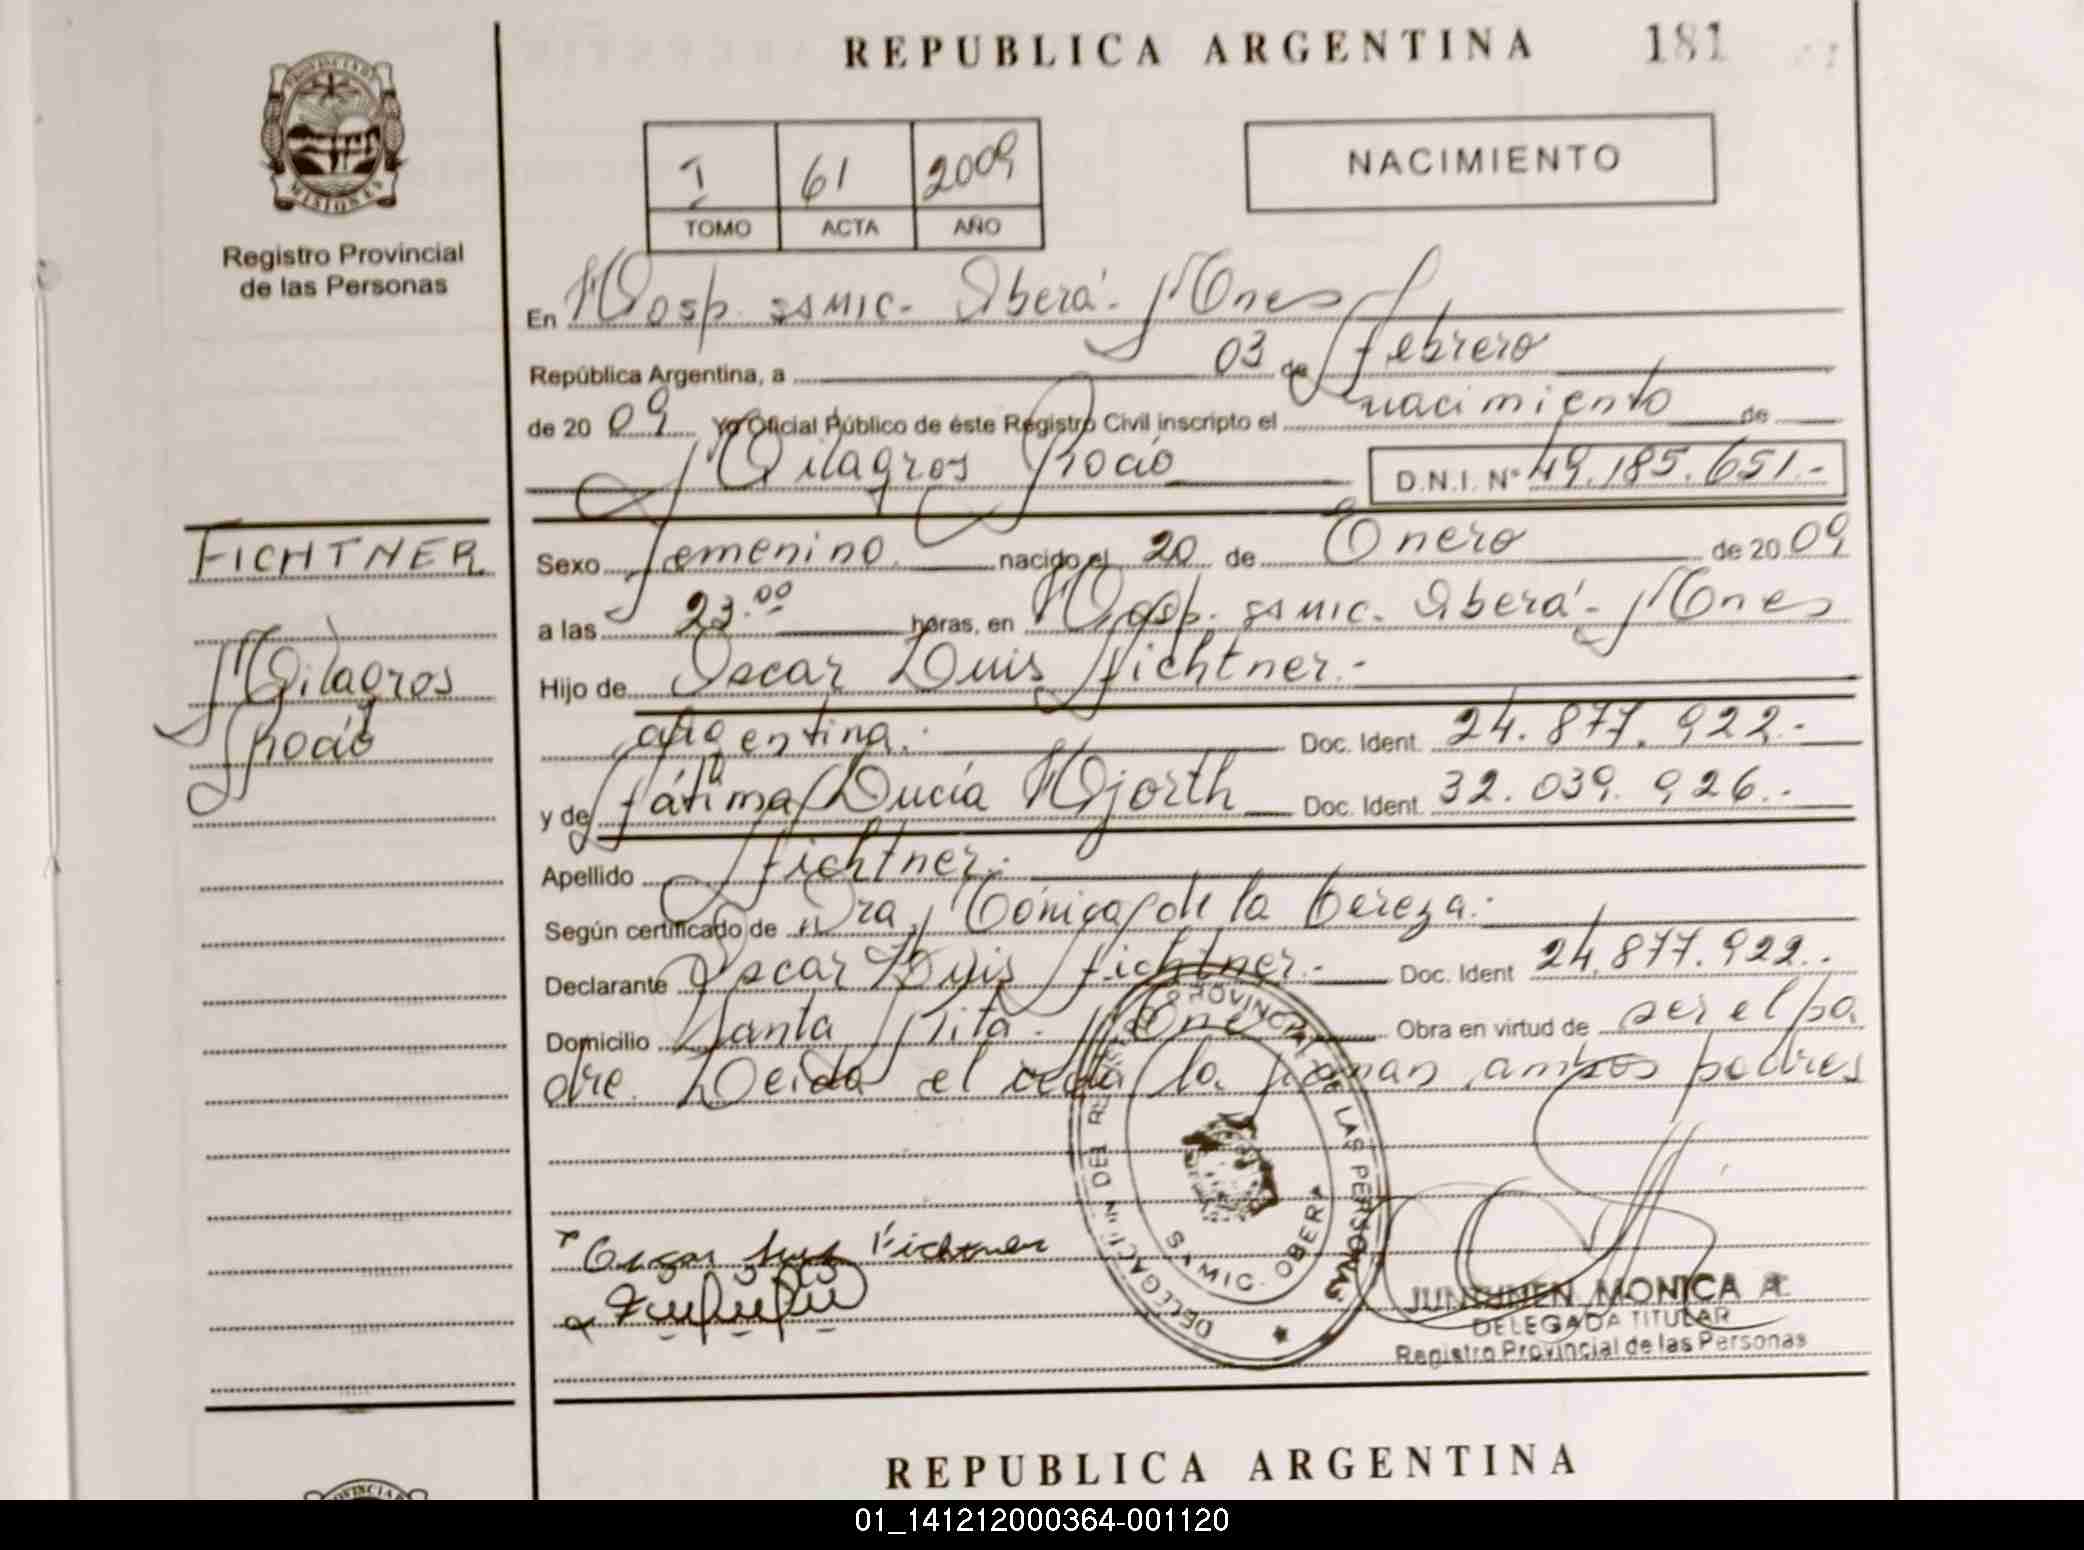 REPUBLICA ARGENTINA 181
PROVINCIA DE
MISIONES
Registro Provincial
de las Personas
I 61 2009
TOMO ACTA AÑO
NACIMIENTO
En Hosp. SAMIC. Oberá. Mnes
República Argentina, a 03 de febrero
de 2009 Yo Oficial Público de éste Registro Civil inscripto el nacimiento de
Milagros Rocío D.N.I. Nº 49.185.651.-
FICHTNER
Milagros
Rocío
Sexo femenino. nacido el 20 de Enero de 2009
a las 23.00 horas, en Hosp. SAMIC. Oberá. Mnes
Hijo de Oscar Luis Fichtner.-
argentina. Doc. Ident. 24.877.922.-
y de Fátima Lucía Hjorth Doc. Ident. 32.039.926.-
Apellido Fichtner.
Según certificado de Dra. Mónica de la Cereza.
Declarante Oscar Luis Fichtner.- Doc. Ident 24.877.922.-
Domicilio Santa Rita. Mnes Obra en virtud de ser el pa
dre. Leida el acta la firman ambos padres
DELEGACIÓN DEL REGISTRO PROVINCIAL DE LAS PERSONAS
SAMIC. OBERA
Oscar Luis Fichtner
JUNTUNEN MONICA A.
DELEGADA TITULAR
Registro Provincial de las Personas
REPUBLICA ARGENTINA
PROVINCIA DE
01_141212000364-001120